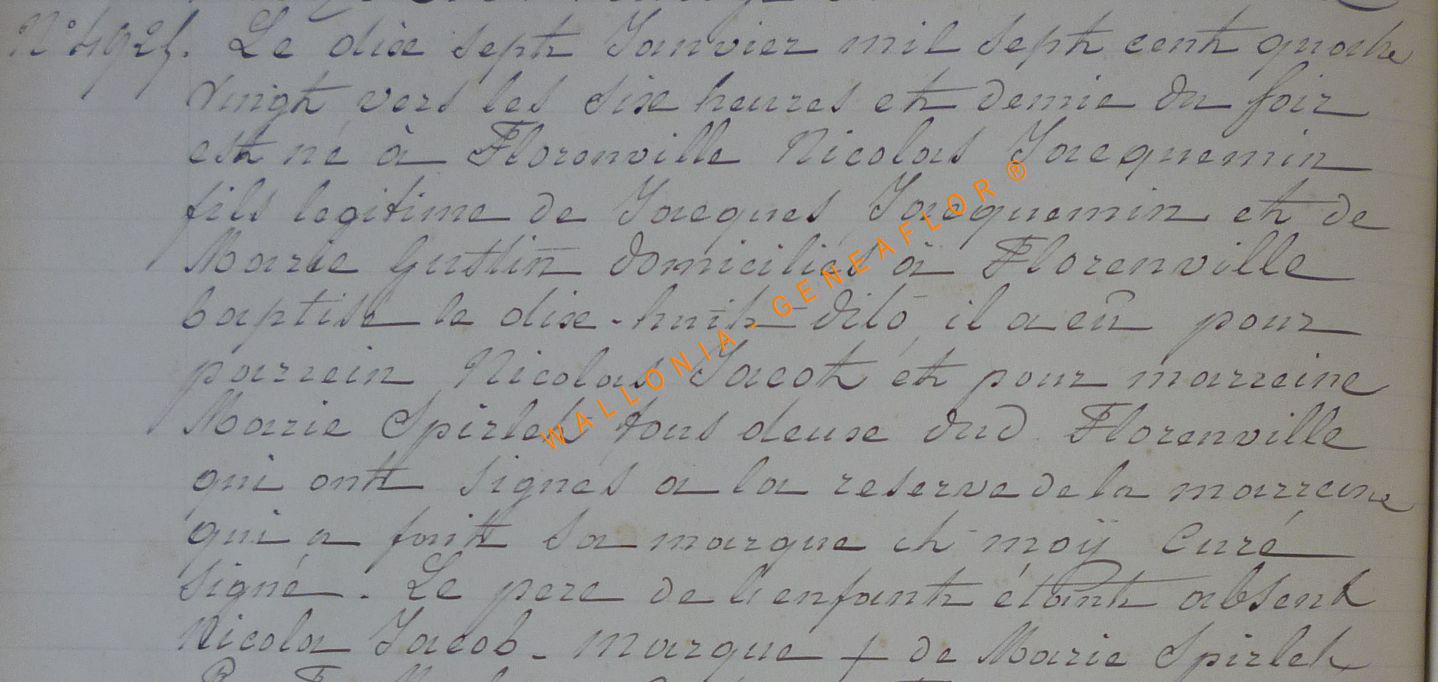 N° 492f. Le dix sept Janvier mil sept cent quatre
Vingt vers les six heures et demie du soir
est né à Florenville Nicolas Jacquemin
fils legitime de Jacques Jacquemin et de
Marie Gustin domiciliés à Florenville
baptisé le dix-huit dito il a eû pour
parrein Nicolas Jacob et pour marreine
Marie Spirlet tous deux dud Florenville
qui ont signés a la reserve de la marreine
qui a fait sa marque et moÿ Curé
signé. Le pere de l'enfant étant absent
Nicola Jacob - Marque + de Marie Spirlet
WALLONIA - GENEAFLOR ®